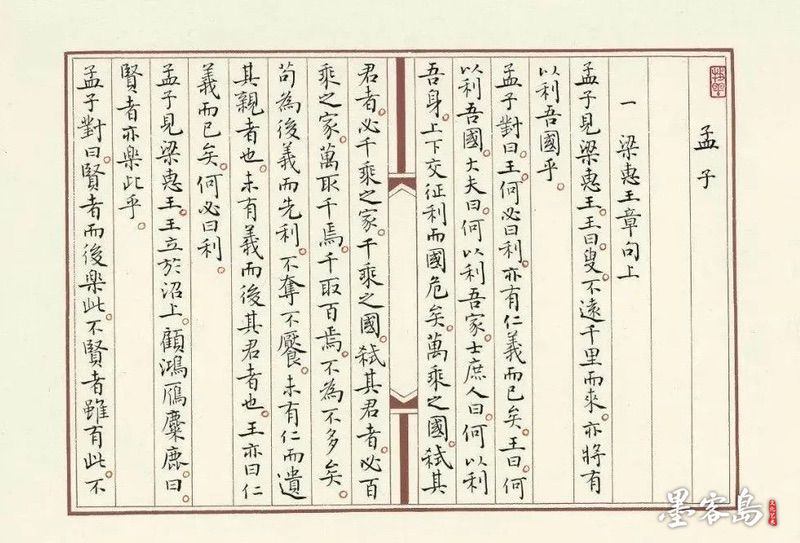 孟子
一 梁惠王章句上
孟子見梁惠王。王曰叟。不遠千里而來。亦將有
以利吾國乎。
孟子對曰。王。何必曰利。亦有仁義而已矣。王曰。何
以利吾國。大夫曰。何以利吾家。士庶人曰。何以利
吾身。上下交征利而國危矣。萬乘之國。弑其
君者。必千乘之家。千乘之國。弑其君者。必百
乘之家。萬取千焉。千取百焉。不為不多矣。
苟為後義而先利。不奪不饜。未有仁而遺
其親者也。未有義而後其君者也。王亦曰仁
義而已矣。何必曰利
孟子見梁惠王。王立於沼上。顧鴻鴈麋鹿。曰
賢者亦樂此乎。
孟子對曰。賢者而後樂此。不賢者雖有此。不
墨客島